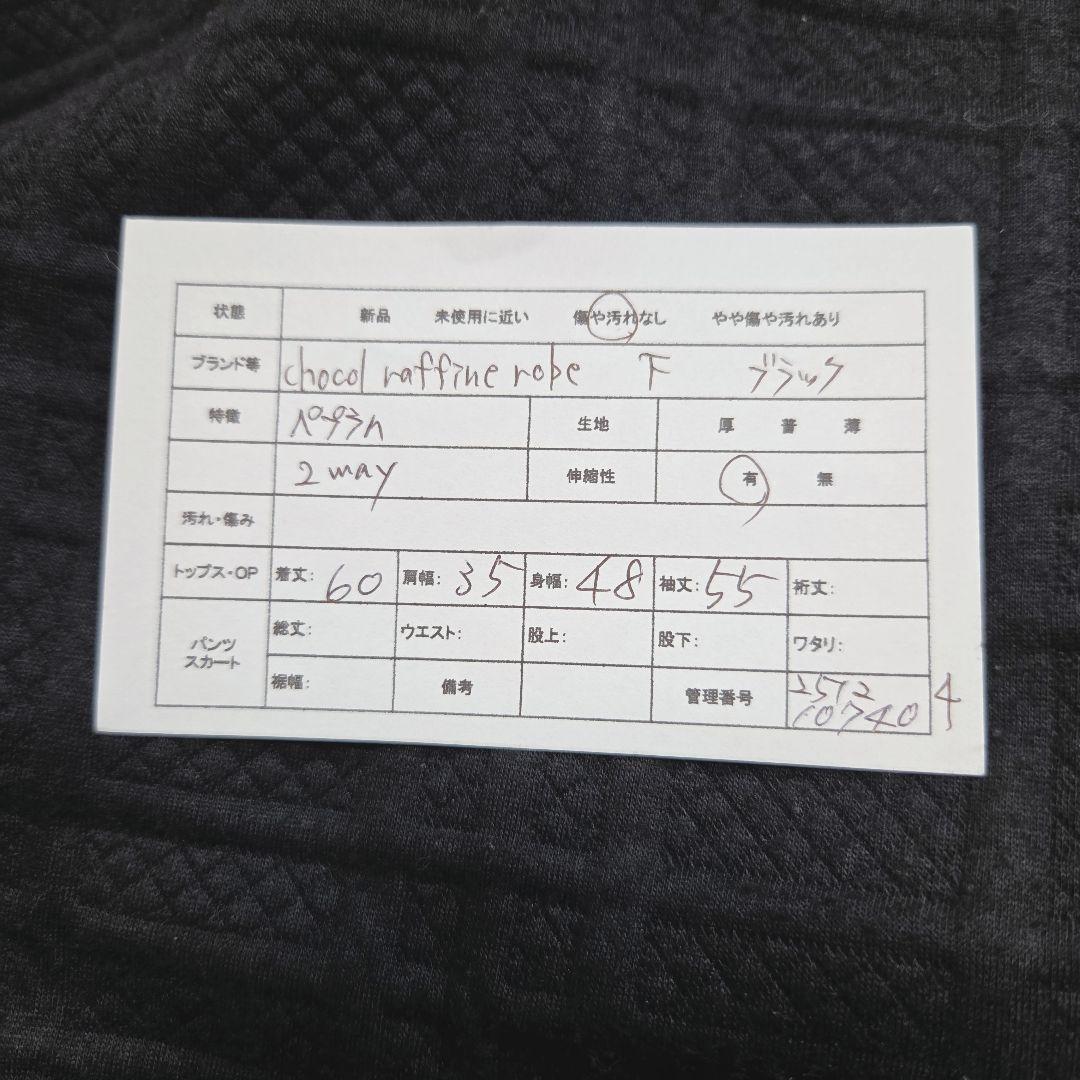 状態 新品 未使用に近い 傷や汚れなし やや傷や汚れあり
ブランド等 chocol raffine robe F ブラック
特徴 ペプラム 生地 厚 普 薄
2way 伸縮性 有 無
汚れ・傷み
トップス・OP 着丈: 60 肩幅: 35 身幅: 48 袖丈: 55 裄丈:
パンツ スカート 総丈: ウエスト: 股上: 股下: ワタリ:
裾幅: 備考 管理番号 2512
10740 4